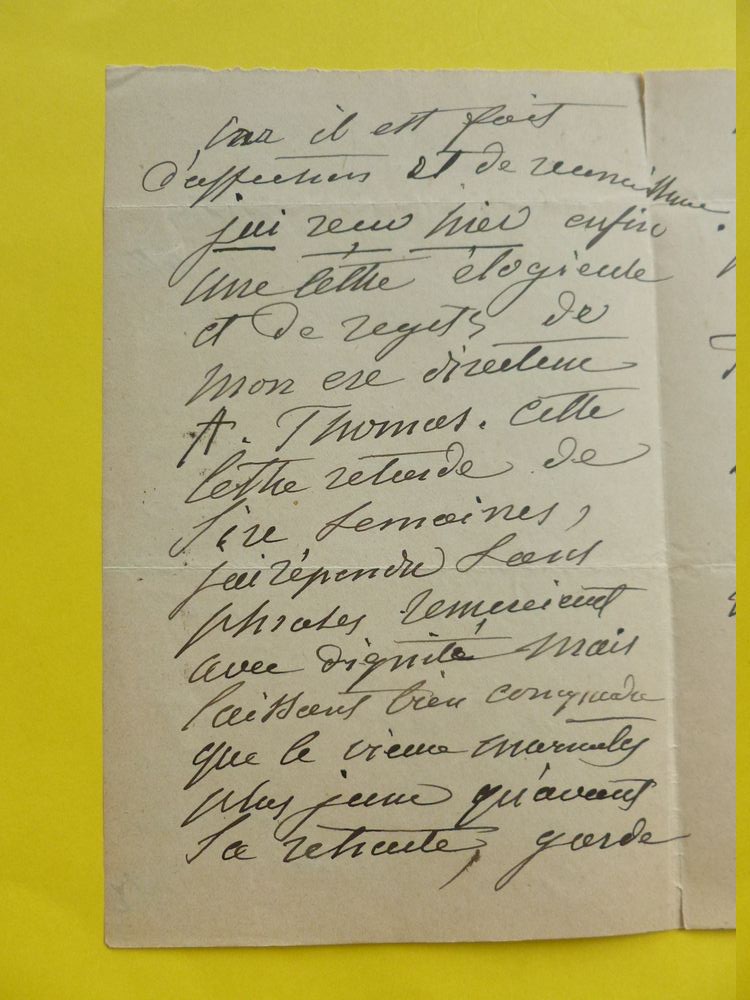 car il est fait
d'affections et de reconnaissance.
j'ai recu hier enfin
une lettre élogieuse
et de regrets de
mon exe directeur
A. Thomas. cette
lettre retarde de
six semaines,
j'ai répondu sans
phrases remerciant
avec dignité, mais
laissant bien comprendre
que le vieux
plus jeune qu'avant
sa retraite, garde